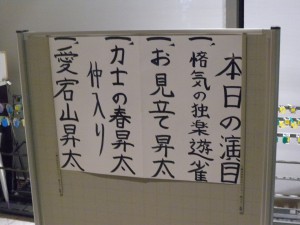 本日の演目
一、悋気の独楽 遊雀
一、お見立て 昇太
一、力士の春 昇太
仲入り
一、愛宕山 昇太